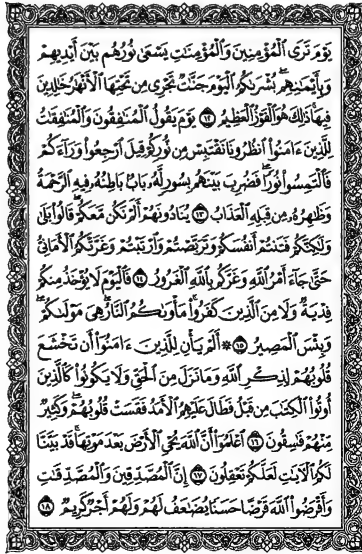 يَوْمَ تَرَى ٱلْمُؤْمِنِينَ وَٱلْمُؤْمِنَٰتِ يَسْعَىٰ نُورُهُم بَيْنَ أَيْدِيهِمْ
وَبِأَيْمَٰنِهِم بُشْرَىٰكُمُ ٱلْيَوْمَ جَنَّٰتٌ تَجْرِى مِن تَحْتِهَا ٱلْأَنْهَٰرُ خَٰلِدِينَ
فِيهَا ذَٰلِكَ هُوَ ٱلْفَوْزُ ٱلْعَظِيمُ ١٢ يَوْمَ يَقُولُ ٱلْمُنَٰفِقُونَ وَٱلْمُنَٰفِقَٰتُ
لِلَّذِينَ ءَامَنُوا۟ ٱنظُرُونَا نَقْتَبِسْ مِن نُّورِكُمْ قِيلَ ٱرْجِعُوا۟ وَرَآءَكُمْ
فَٱلْتَمِسُوا۟ نُورًا فَضُرِبَ بَيْنَهُم بِسُورٍ لَّهُۥ بَابٌۢ بَاطِنُهُۥ فِيهِ ٱلرَّحْمَةُ
وَظَٰهِرُهُۥ مِن قِبَلِهِ ٱلْعَذَابُ ١٣ يُنَادُونَهُمْ أَلَمْ نَكُن مَّعَكُمْ قَالُوا۟ بَلَىٰ
وَلَٰكِنَّكُمْ فَتَنتُمْ أَنفُسَكُمْ وَتَرَبَّصْتُمْ وَٱرْتَبْتُمْ وَغَرَّتْكُمُ ٱلْأَمَانِىُّ
حَتَّىٰ جَآءَ أَمْرُ ٱللَّهِ وَغَرَّكُم بِٱللَّهِ ٱلْغَرُورُ ١٤ فَٱلْيَوْمَ لَا يُؤْخَذُ مِنكُمْ
فِدْيَةٌ وَلَا مِنَ ٱلَّذِينَ كَفَرُوا۟ مَأْوَىٰكُمُ ٱلنَّارُ هِىَ مَوْلَىٰكُمْ
وَبِئْسَ ٱلْمَصِيرُ ١٥ ۞ أَلَمْ يَأْنِ لِلَّذِينَ ءَامَنُوٓا۟ أَن تَخْشَعَ
قُلُوبُهُمْ لِذِكْرِ ٱللَّهِ وَمَا نَزَلَ مِنَ ٱلْحَقِّ وَلَا يَكُونُوا۟ كَٱلَّذِينَ
أُوتُوا۟ ٱلْكِتَٰبَ مِن قَبْلُ فَطَالَ عَلَيْهِمُ ٱلْأَمَدُ فَقَسَتْ قُلُوبُهُمْ وَكَثِيرٌ
مِّنْهُمْ فَٰسِقُونَ ١٦ ٱعْلَمُوٓا۟ أَنَّ ٱللَّهَ يُحْىِ ٱلْأَرْضَ بَعْدَ مَوْتِهَا قَدْ بَيَّنَّا
لَكُمُ ٱلْءَايَٰتِ لَعَلَّكُمْ تَعْقِلُونَ ١٧ إِنَّ ٱلْمُصَّدِّقِينَ وَٱلْمُصَّدِّقَٰتِ
وَأَقْرَضُوا۟ ٱللَّهَ قَرْضًا حَسَنًا يُضَٰعَفُ لَهُمْ وَلَهُمْ أَجْرٌ كَرِيمٌ ١٨